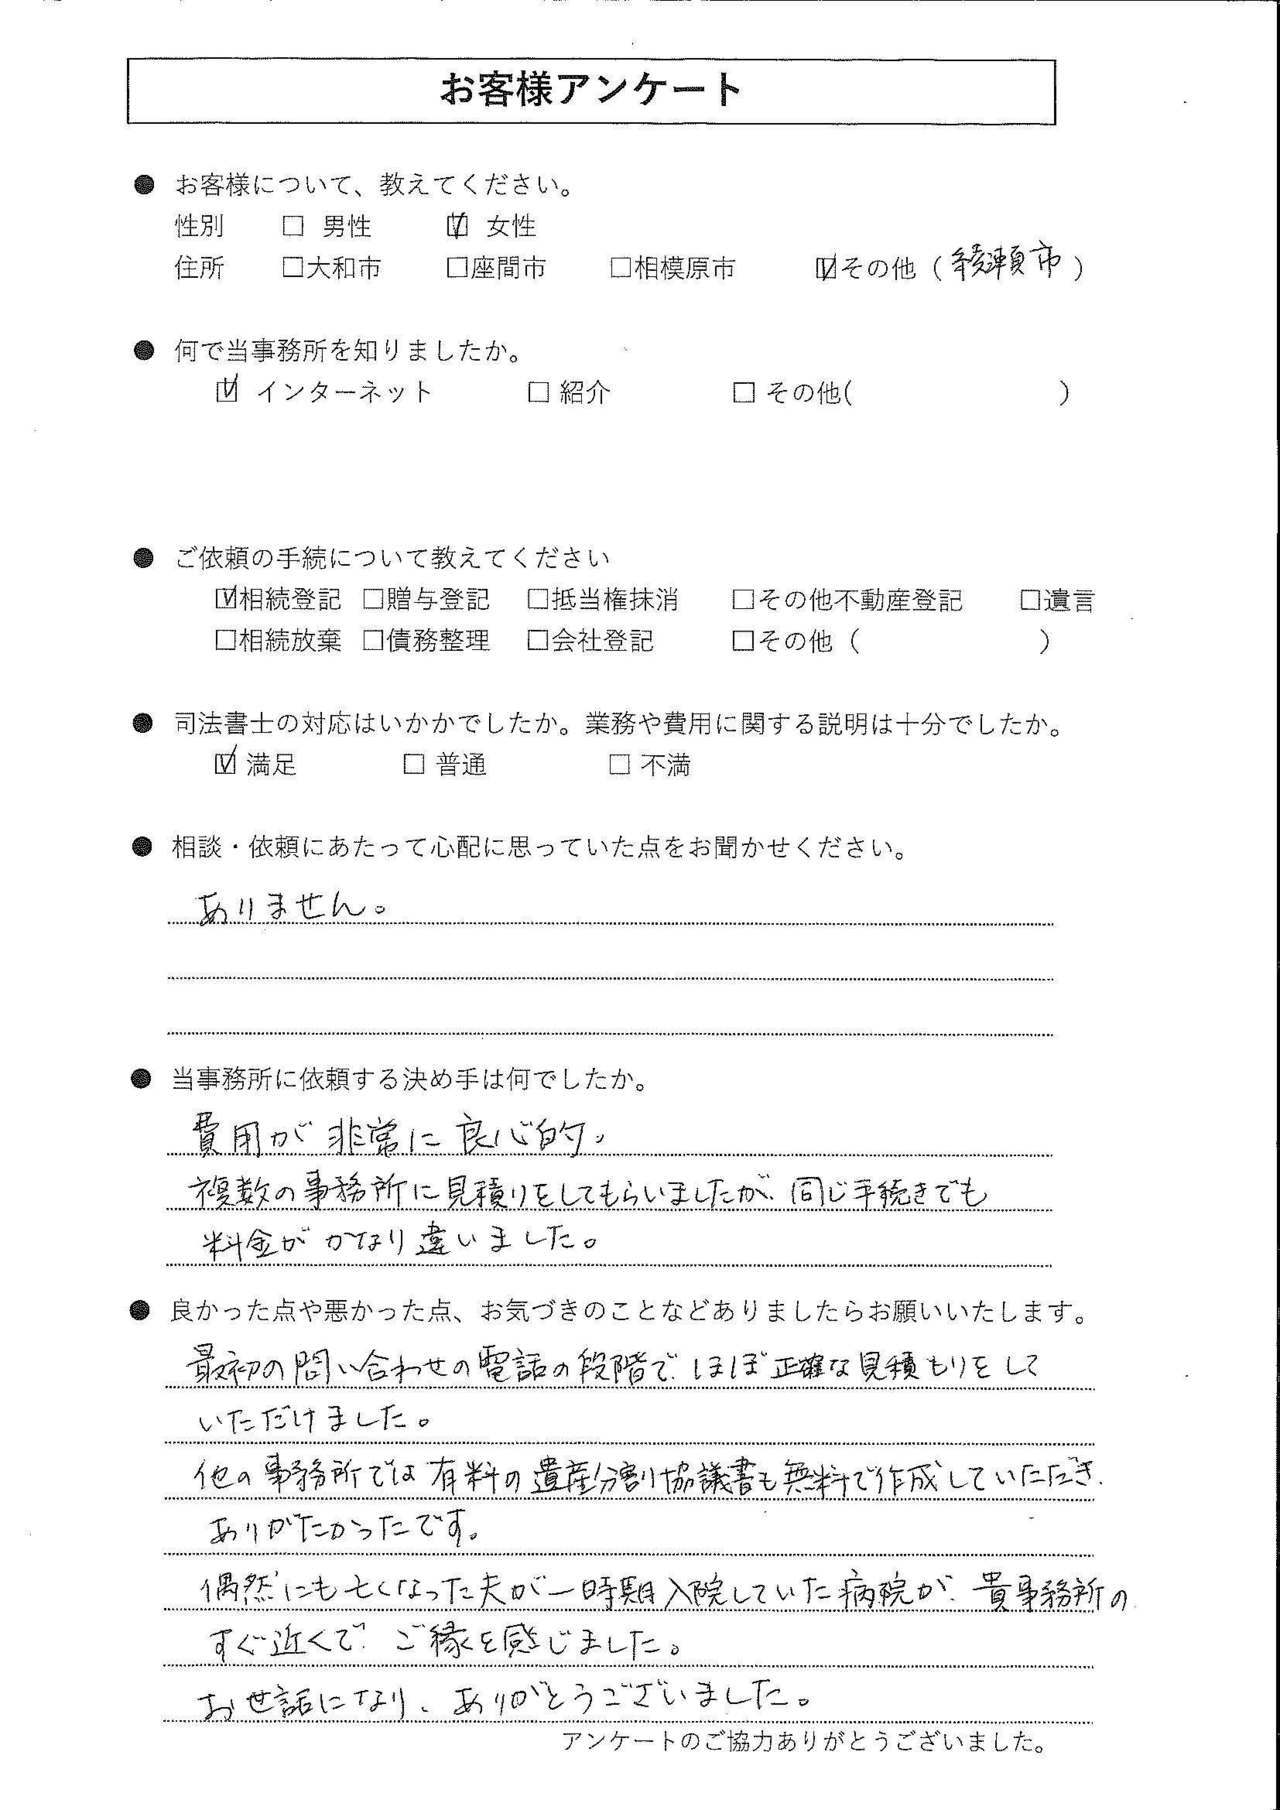 お客様アンケート
● お客様について、教えてください。
性別 □ 男性 ☑ 女性
住所 □大和市 □座間市 □相模原市 ☑その他（綾瀬市）
● 何で当事務所を知りましたか。
☑ インターネット □ 紹介 □ その他( )
● ご依頼の手続について教えてください
☑相続登記 □贈与登記 □抵当権抹消 □その他不動産登記 □遺言
□相続放棄 □債務整理 □会社登記 □その他（ ）
● 司法書士の対応はいかかでしたか。業務や費用に関する説明は十分でしたか。
☑ 満足 □ 普通 □ 不満
● 相談・依頼にあたって心配に思っていた点をお聞かせください。
ありません。
● 当事務所に依頼する決め手は何でしたか。
費用が非常に良心的。
複数の事務所に見積りをしてもらいましたが、同じ手続きでも
料金がかなり違いました。
● 良かった点や悪かった点、お気づきのことなどありましたらお願いいたします。
最初の問い合わせの電話の段階で、ほぼ正確な見積もりをして
いただけました。
他の事務所では有料の遺産分割協議書も無料で作成していただき、
ありがたかったです。
偶然にも亡くなった夫が一時期入院していた病院が、貴事務所の
すぐ近くで、ご縁を感じました。
お世話になり、ありがとうございました。
アンケートのご協力ありがとうございました。